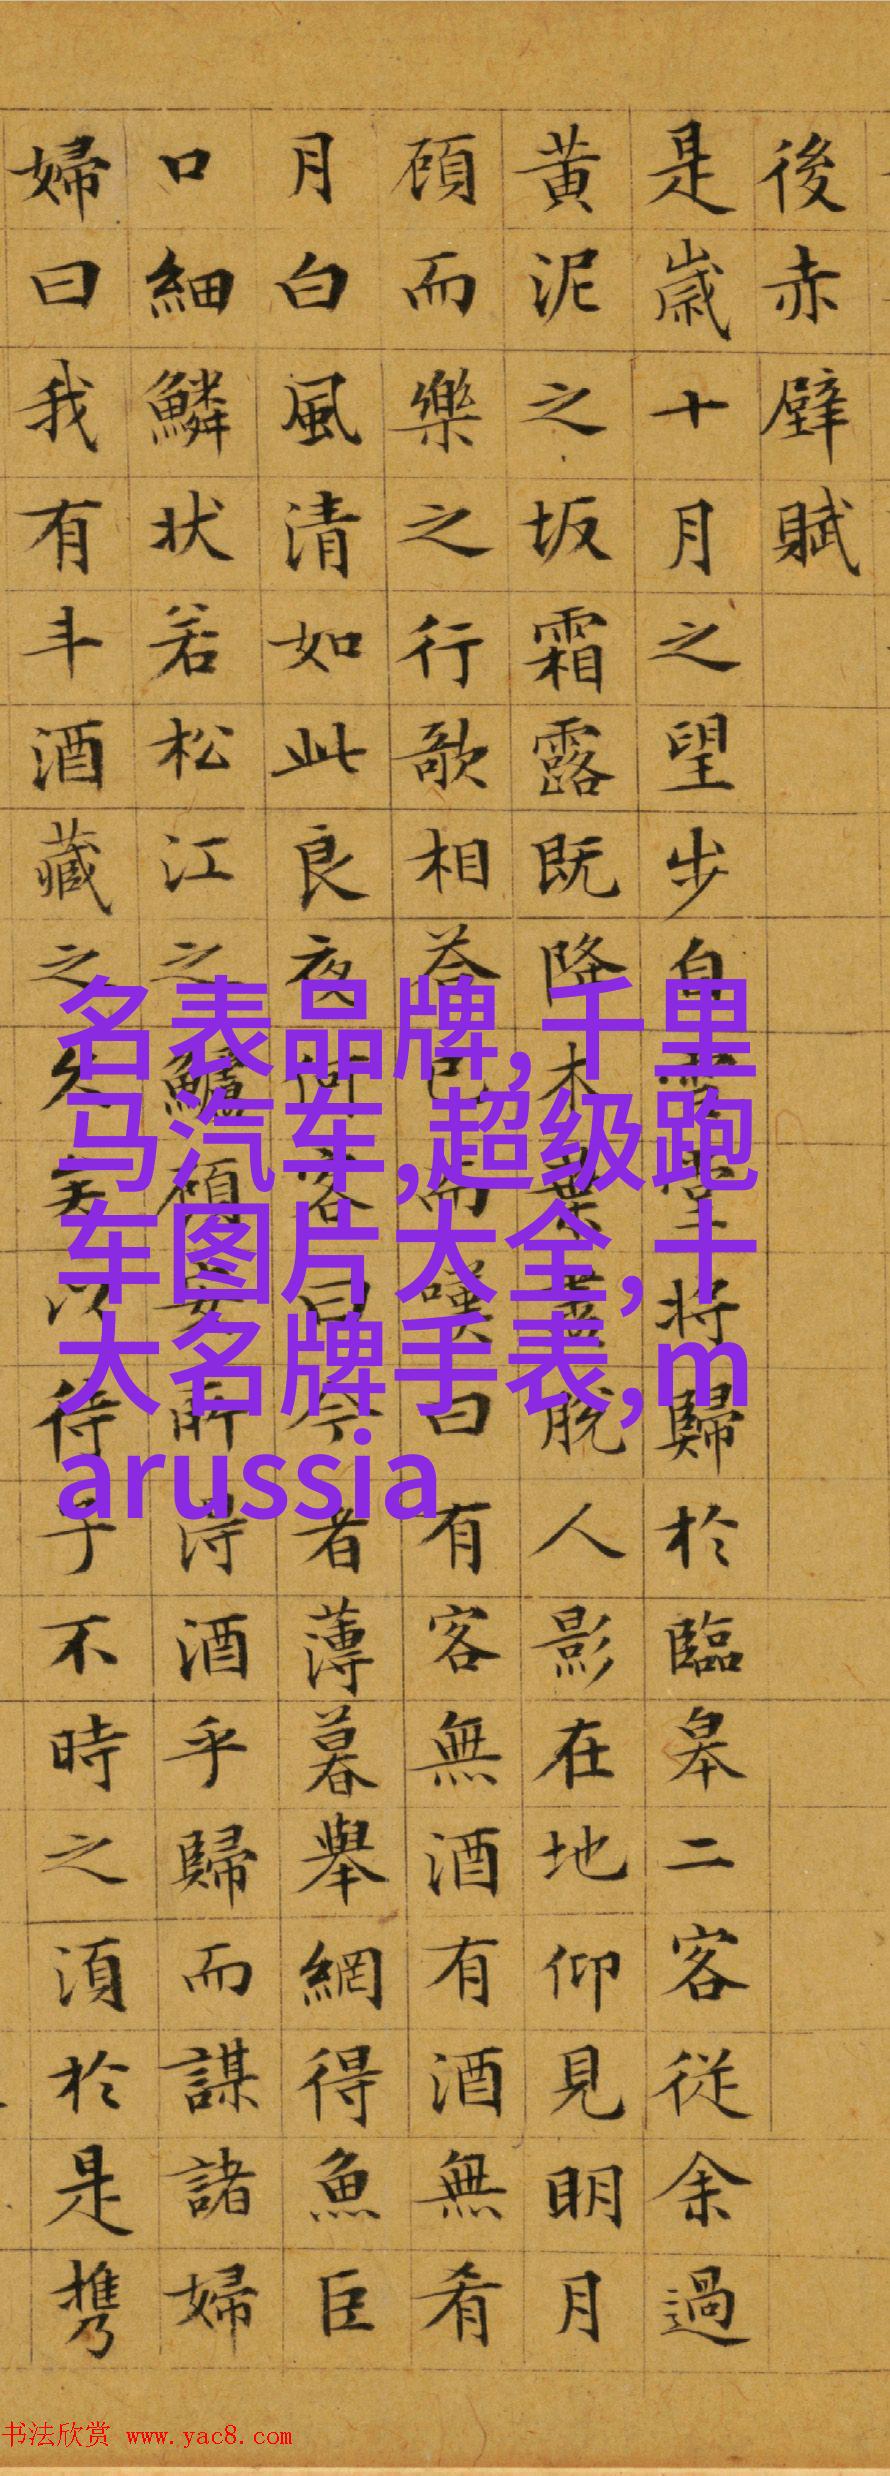 後赤壁賦
是歳十月之望步自雪堂將歸於臨皋二客從余過
黄泥之坂霜露既降木葉盡脫人影在地仰見明月
顧而樂之行歌相荅已而嘆曰有客無酒有酒無肴
月白風清如此良夜何客曰今者薄暮舉網得魚巨
口細鱗状若松江之鱸顧安所淂酒乎歸而謀諸婦
婦曰我有斗酒藏之久矣以待子不時之須於是携
名表品牌,千里
马汽车,超级跑
车图片大全,十
大名牌手表,m
arussia
书法欣赏 www.yac8.com